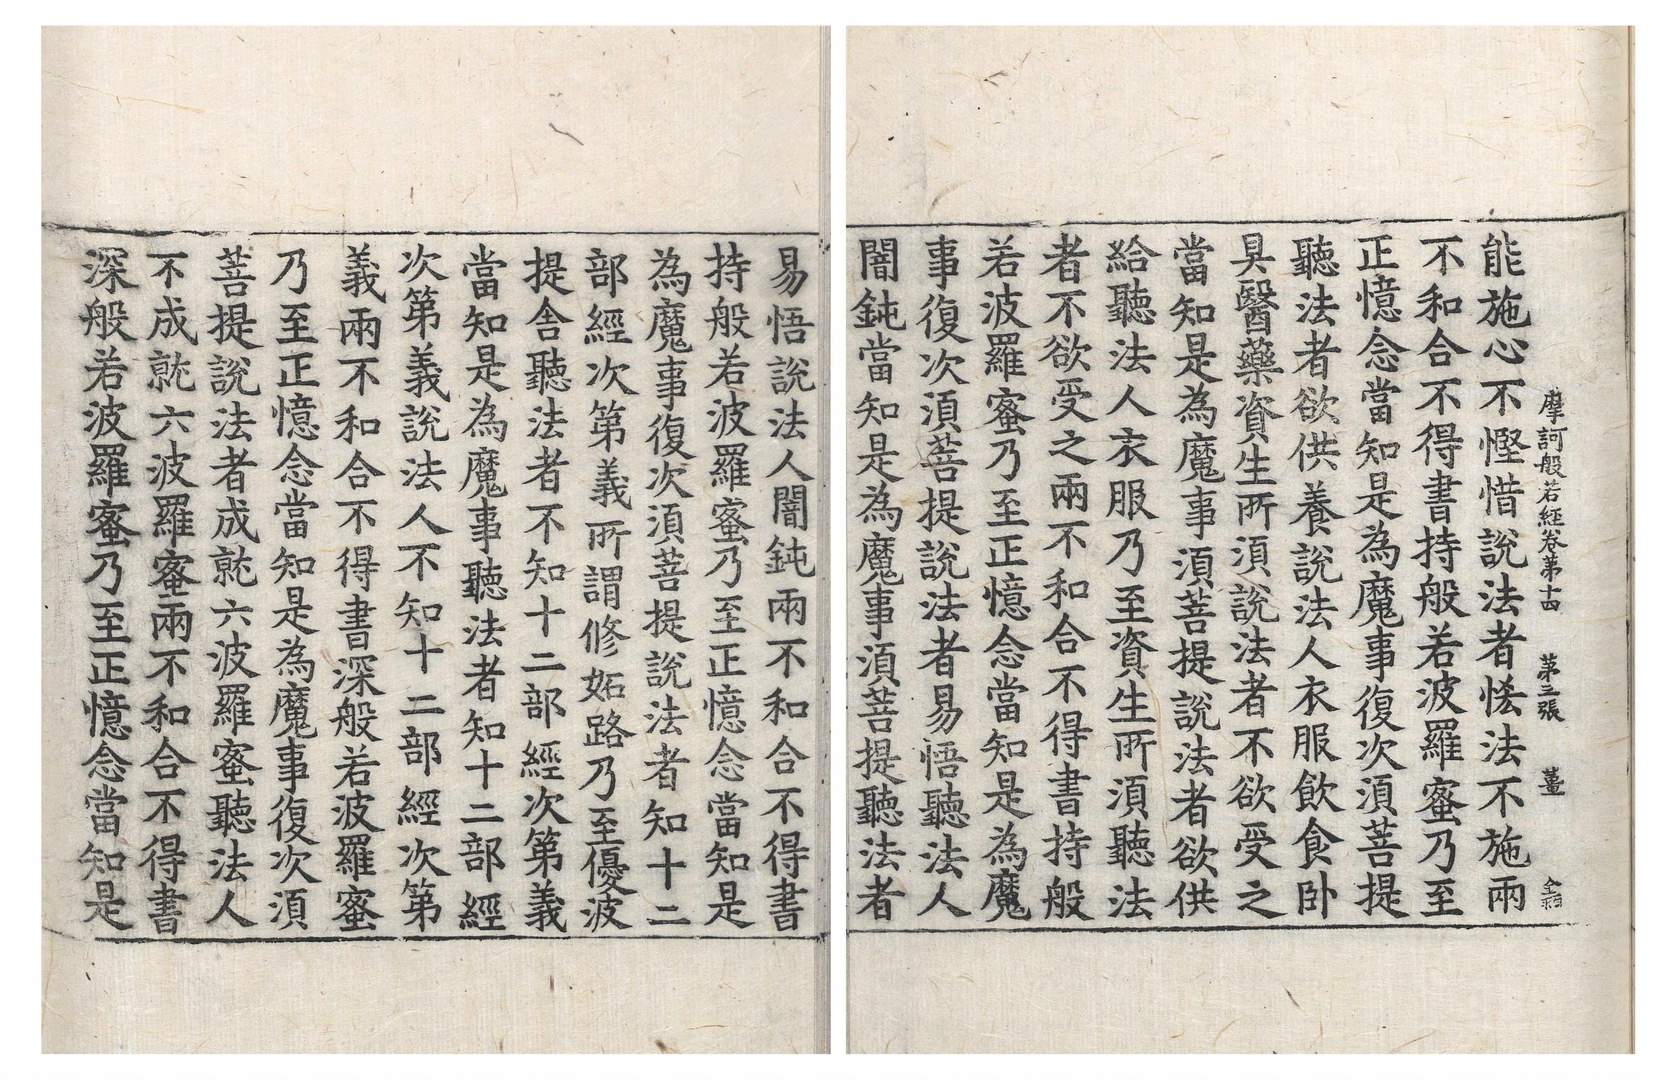 摩訶般若經卷第十四 第三張 薑
能施心不慳惜說法者恡法不施兩
不和合不得書持般若波羅蜜乃至
正憶念當知是為魔事復次須菩提
聽法者欲供養說法人衣服飲食卧
具醫藥資生所須說法者不欲受之
當知是為魔事須菩提說法者欲供
給聽法人衣服乃至資生所須聽法
者不欲受之兩不和合不得書持般
若波羅蜜乃至正憶念當知是為魔
事復次須菩提說法者易悟聽法人
闇鈍當知是為魔事須菩提聽法者
易悟說法人闇鈍兩不和合不得書
持般若波羅蜜乃至正憶念當知是
為魔事復次須菩提說法者知十二
部經次第義所謂修妬路乃至優波
提舍聽法者不知十二部經次第義
當知是為魔事聽法者知十二部經
次第義說法人不知十二部經次第
義兩不和合不得書深般若波羅蜜
乃至正憶念當知是為魔事復次須
菩提說法者成就六波羅蜜聽法人
不成就六波羅蜜兩不和合不得書
深般若波羅蜜乃至正憶念當知是